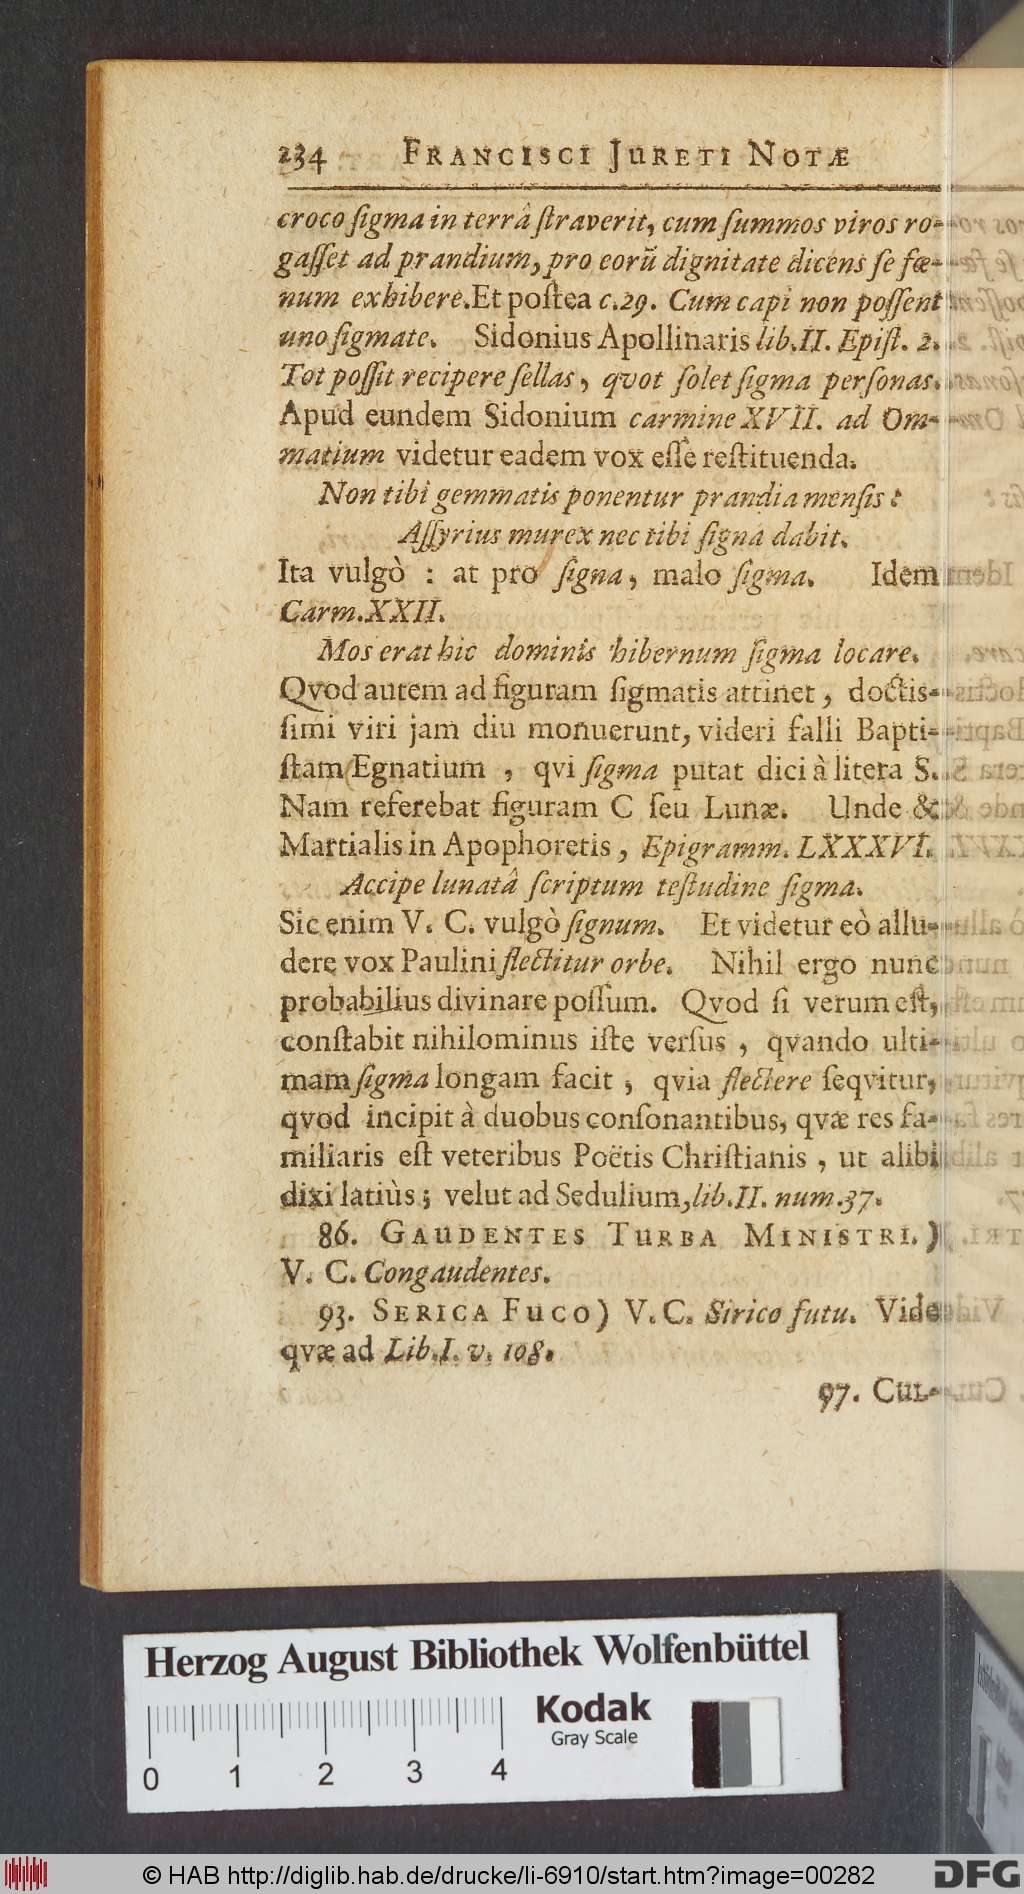 234 FRANCISCI JURETI NOTÆ
croco ſigma in terrâ ſtraverit, cum ſummos viros ro-
gaſſet ad prandium, pro eorũ dignitate dicens ſe fœ-
num exhibere. Et poſtea c. 29. Cum capi non poſſent
uno ſigmate. Sidonius Apollinaris lib. II. Epiſt. 2.
Tot poſſit recipere ſellas, qvot ſolet ſigma perſonas.
Apud eundem Sidonium carmine XVII. ad Om-
matium videtur eadem vox eſſe reſtituenda.
Non tibi gemmatis ponentur prandia menſis:
Aſſyrius murex nec tibi ſigna dabit.
Ita vulgò : at pro ſigna, malo ſigma. Idem
Carm. XXII.
Mos erat hic dominis hibernum ſigma locare.
Qvod autem ad figuram ſigmatis attinet, doctis-
ſimi viri jam diu monuerunt, videri falli Bapti-
ſtam Egnatium , qvi ſigma putat dici à litera S.
Nam referebat figuram C ſeu Lunæ. Unde &
Martialis in Apophoretis, Epigramm. LXXXVI.
Accipe lunatâ ſcriptum teſtudine ſigma.
Sic enim V. C. vulgò ſignum. Et videtur eò allu-
dere vox Paulini flectitur orbe. Nihil ergo nunc
probabilius divinare poſſum. Qvod ſi verum eſt,
conſtabit nihilominus iſte verſus, qvando ulti-
mam ſigma longam facit, qvia flectere ſeqvitur,
qvod incipit à duobus conſonantibus, qvæ res fa-
miliaris eſt veteribus Poëtis Chriſtianis, ut alibi
dixi latiùs; velut ad Sedulium, lib. II. num. 37.
86. GAUDENTES TURBA MINISTRI.)
V. C. Congaudentes.
93. SERICA FUCO) V. C. Sirico futu. Vide
qvæ ad Lib. I. v. 108.
97. CUL-
Herzog August Bibliothek Wolfenbüttel
Kodak
Gray Scale
0 1 2 3 4
© HAB http://diglib.hab.de/drucke/li-6910/start.htm?image=00282
DFG